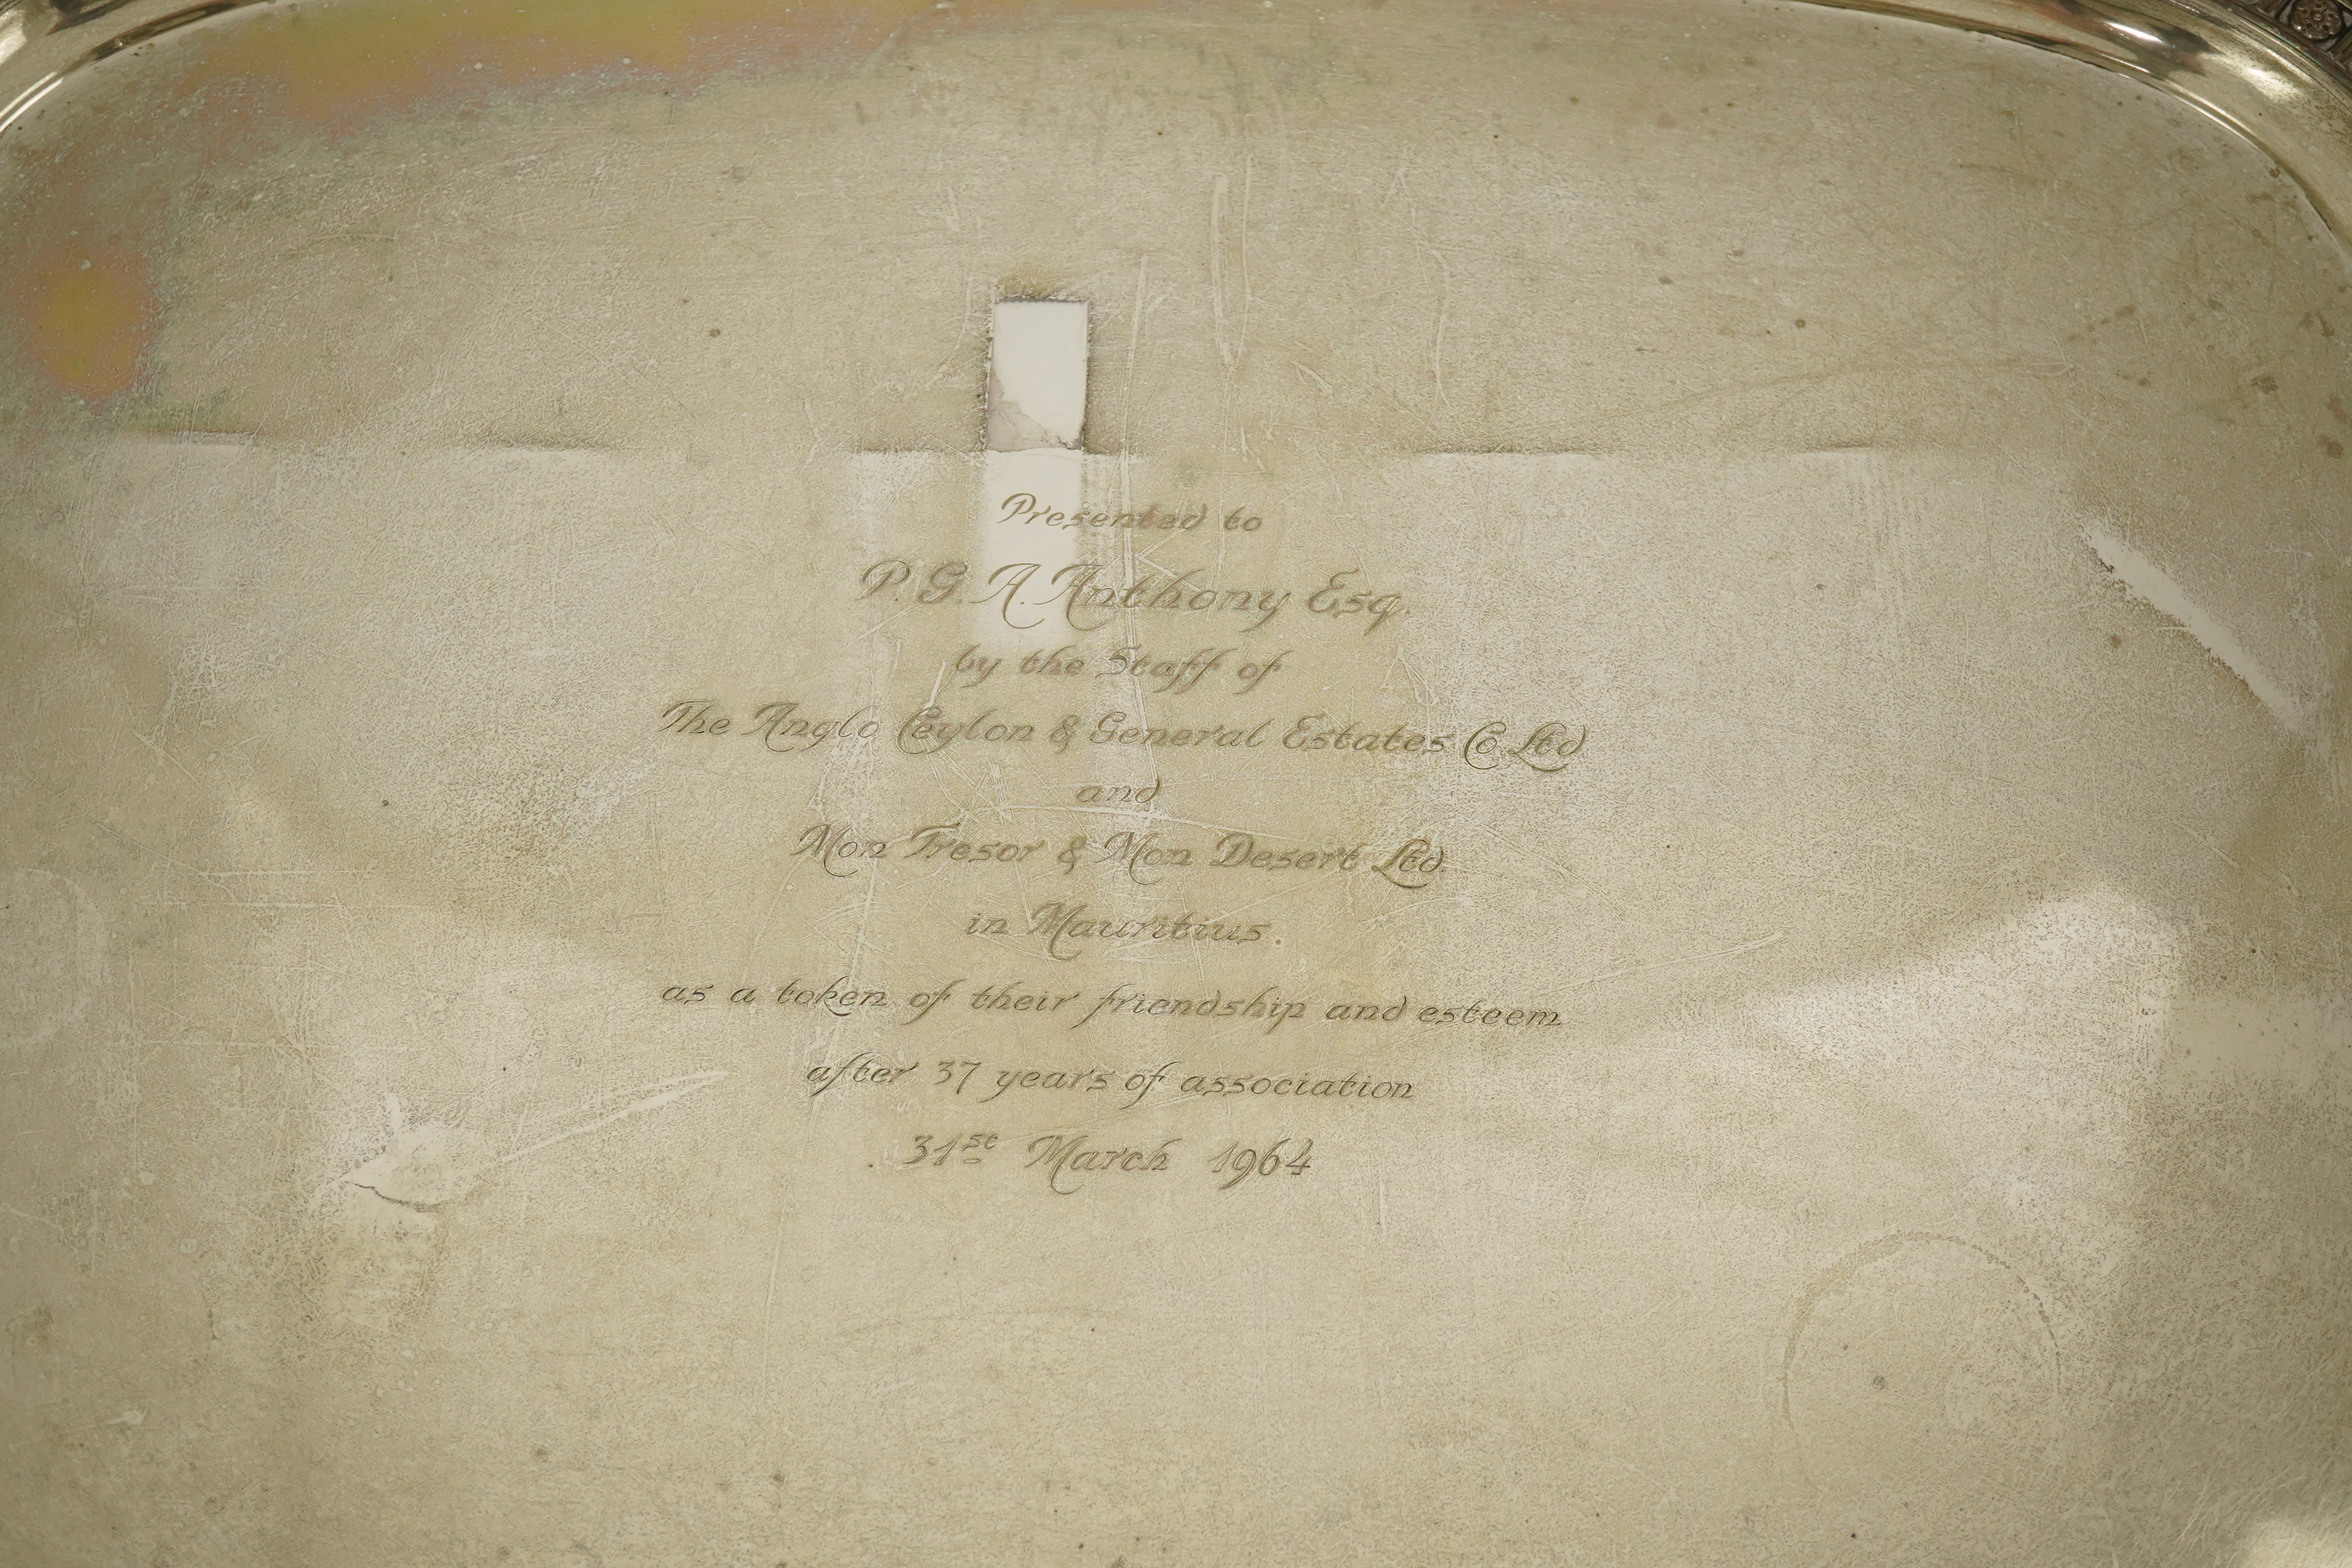 Presented to
P. G. A. Anthony Esq.
by the Staff of
The Anglo Ceylon & General Estates Co Ltd
and
Mon Tresor & Mon Desert Ltd.
in Mauritius.
as a token of their friendship and esteem
after 37 years of association
31st March 1964